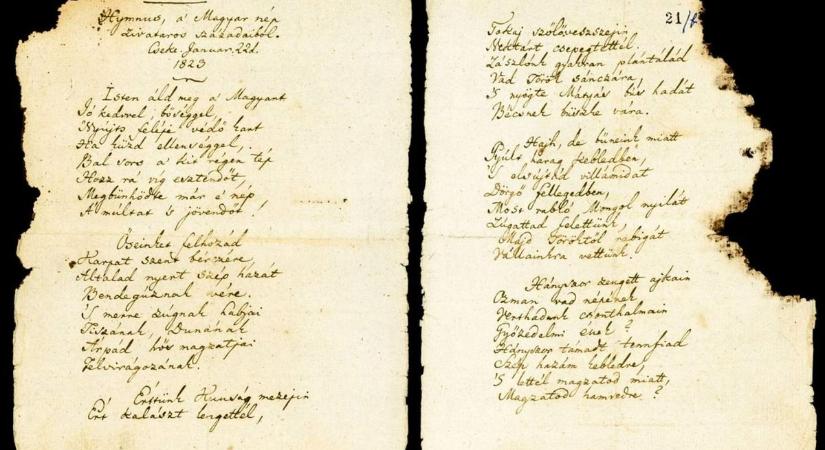 Hymnus, a' Magyar nép
zivataros századaiból.
Cseke. Januar. 22d.
1823
Isten áldd meg a' Magyart
Jó kedvvel, bőséggel,
Nyújts feléje védő kart
Ha küzd ellenséggel,
Bal sors a' kit régen tép
Hozz rá víg esztendőt,
Megbűnhődte már e' nép
A' multat 's jövendőt!
Őseinket felhozád
Kárpát szent bérczére,
Általad nyert szép hazát
Bendegúznak vére.
'S merre zúgnak habjai
Tiszának, Dunának
Árpád, hős magzatjai
Felvirágozának.
Értünk Kunság mezejin
Ért kalászt lengettél,
21/
Tokaj szőlővesszejin
Nektárt csepegtettél.
Zászlónk gyakran plántálád
Vad Török sánczára,
'S nyögte Mátyás bús hadát
Bécsnek büszke vára.
Hajh, de bűneink miatt
Gyúlt harag kebledben,
'S elsújtád villámidat
Dörgő fellegedben,
Most rabló Mongol nyilát
Zúgattad felettünk,
Majd Töröktől rabigát
Vállainkra vettünk.
Hányszor zengett ajkain
Ozman vad népének
Vert hadunk csonthalmain
Győzedelmi ének?
Hányszor támadt tennfiad
Szép hazám kebledre,
'S lettél magzatod miatt,
Magzatod hamvvedre?